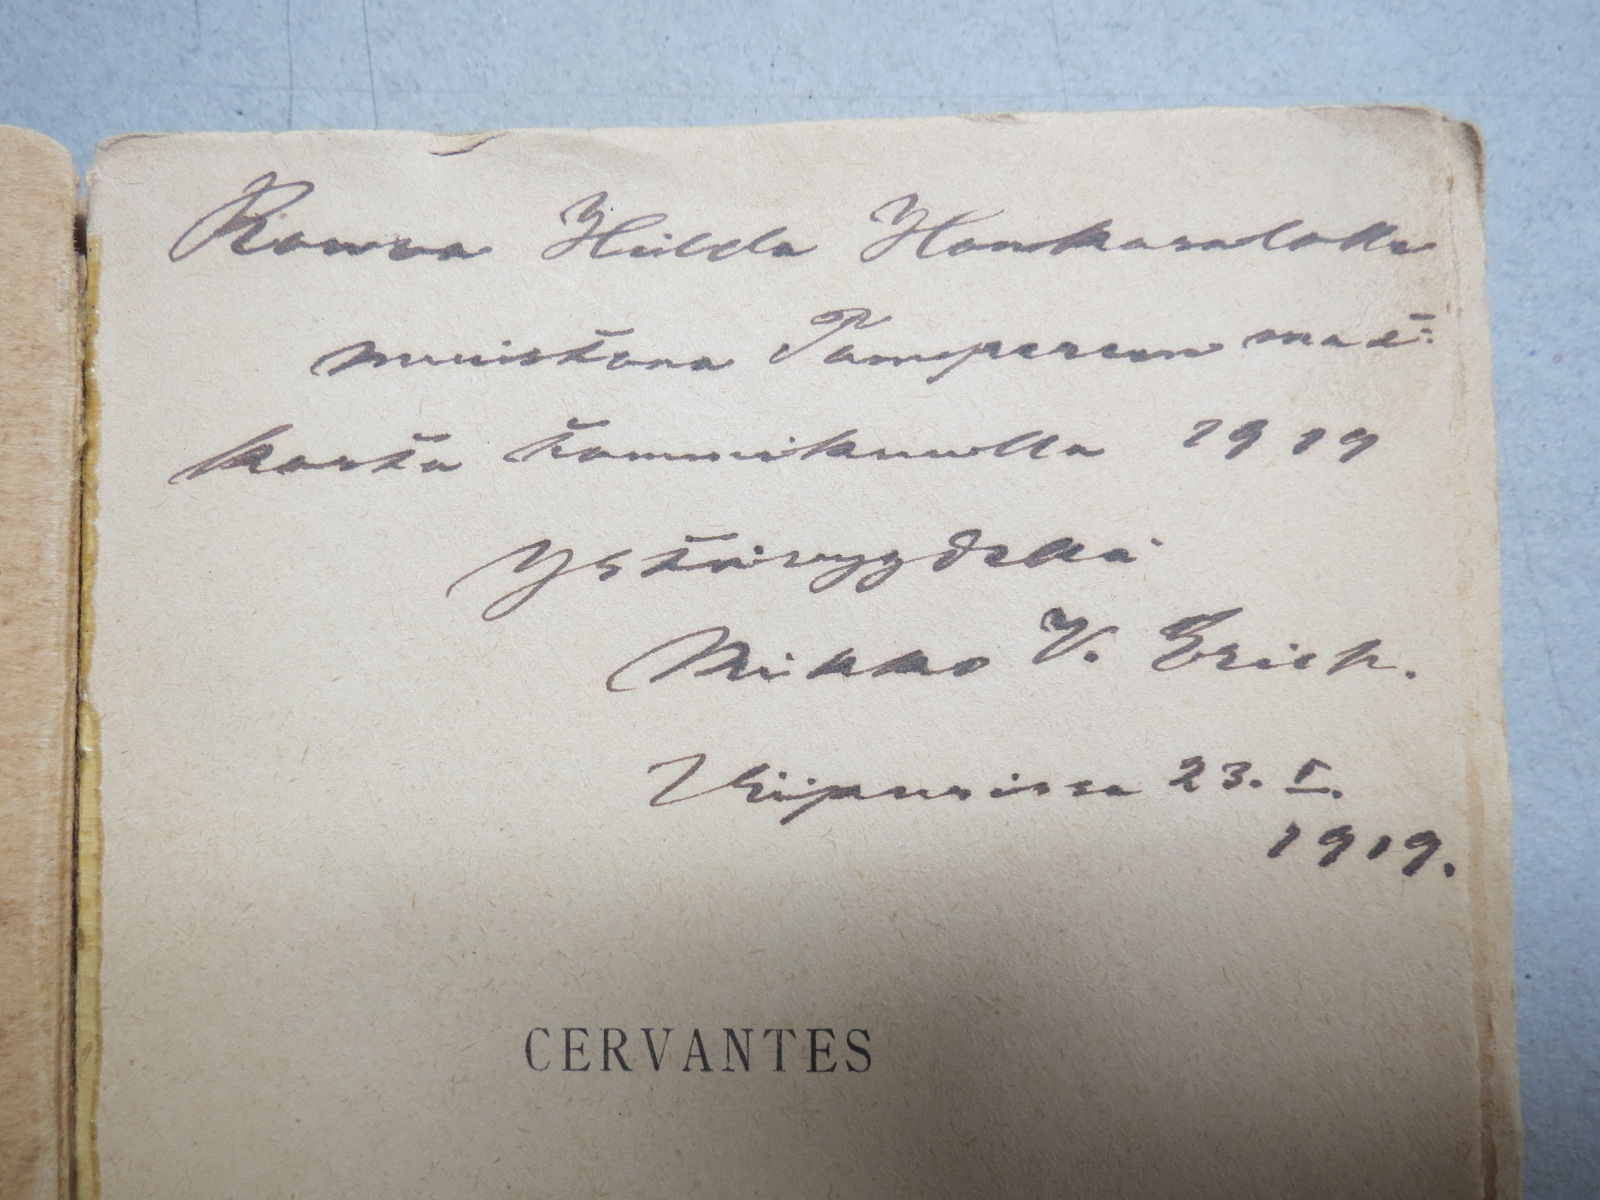 Rouva Hilda Honkasalolle
muistona Tampereen mat-
kasta tammikuulla 1919
Ystävyydellä
Mikko V. Erich.
Viipurissa 23. I.
1919.
CERVANTES